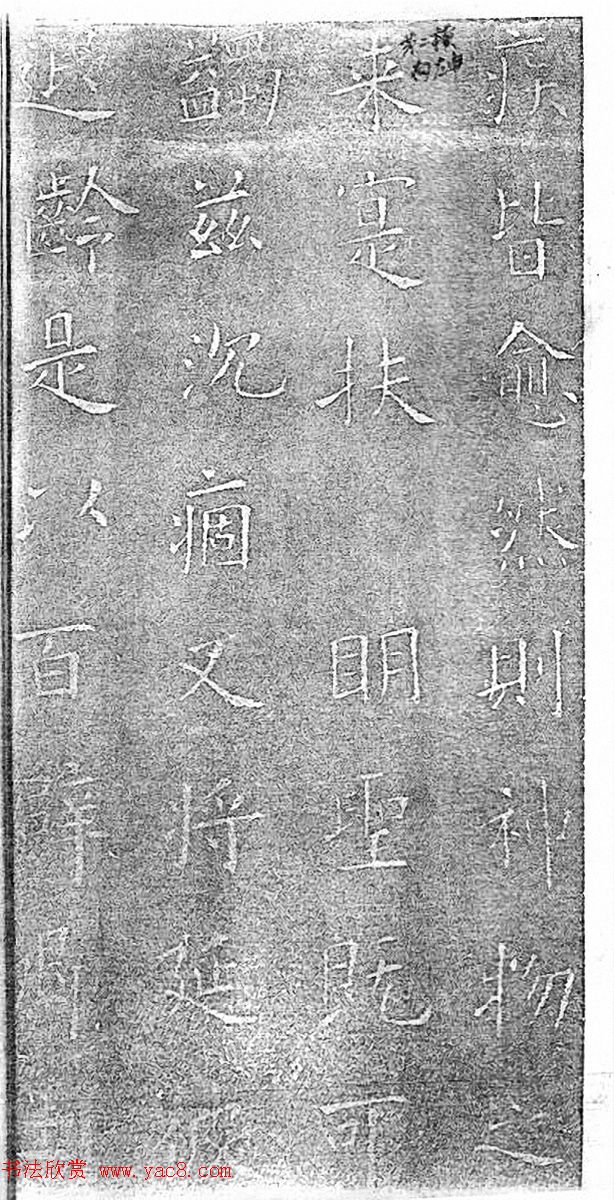 疾皆愈然則神物之
来寔扶明聖既可
蠲兹沉痼又将延彼
遐齡是以百辟卿
书法欣赏 www.yac8.com